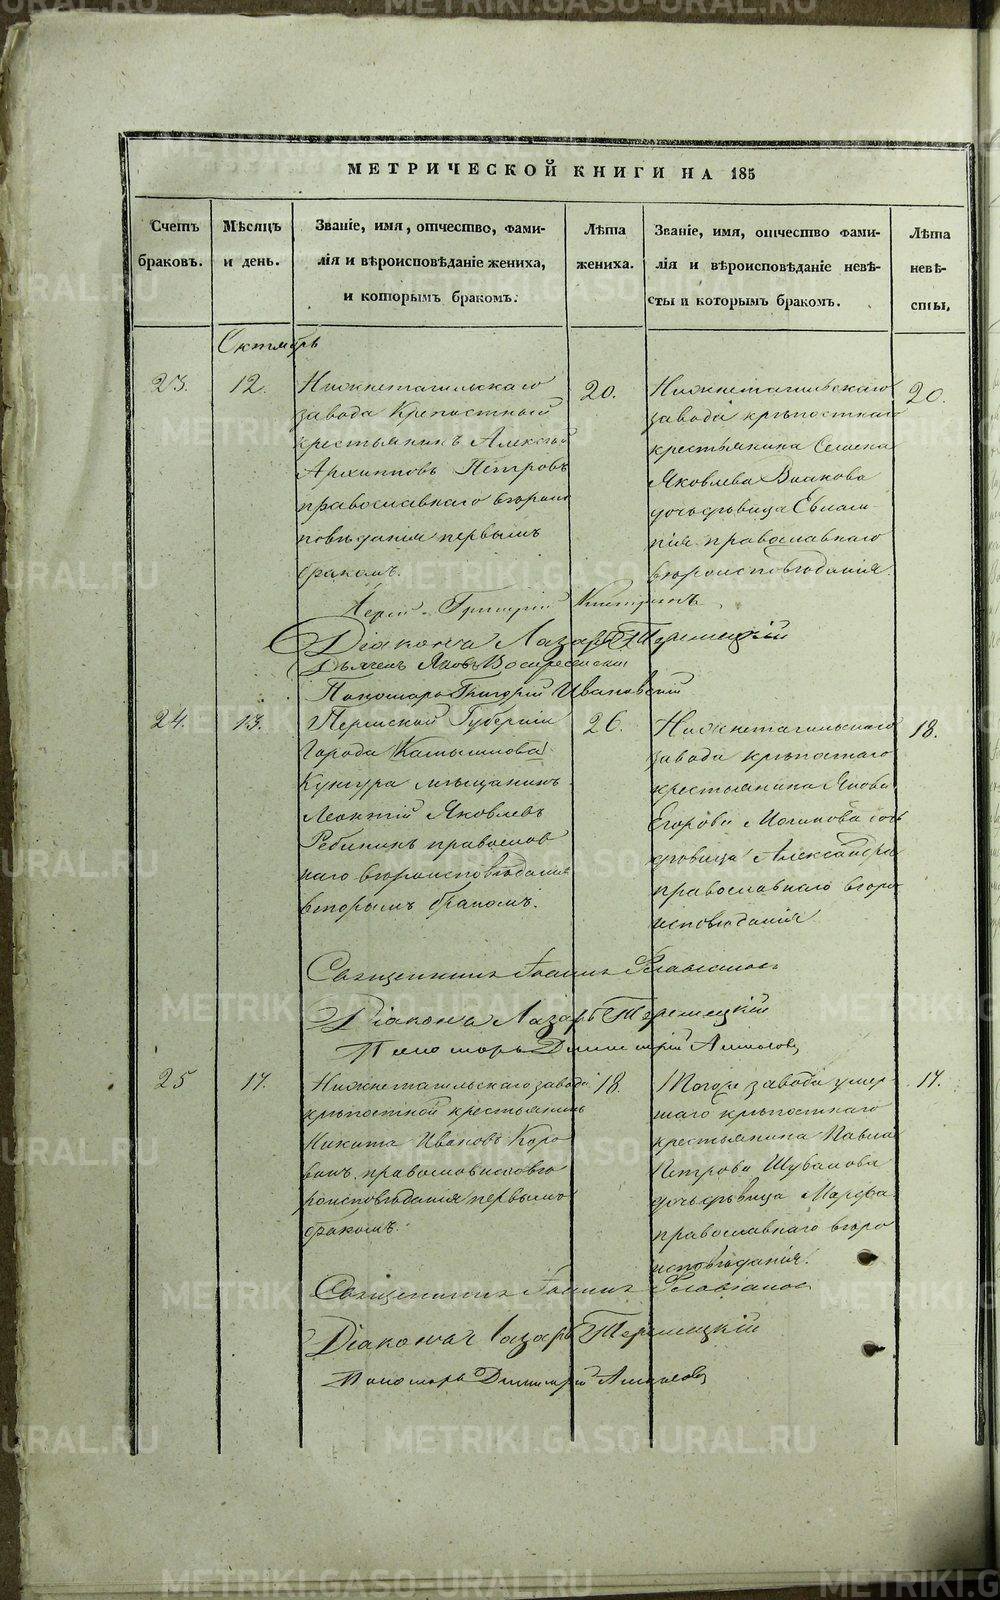 МЕТРИЧЕСКОЙ КНИГИ НА 185
Счетъ браковъ.
Мѣсяцъ и день.
Званіе, имя, отчество, фами-
лія и вѣроисповѣданіе жениха,
и которымъ бракомъ.
Лѣта жениха.
Званіе, имя, отчество фами-
лія и вѣроисповѣданіе невѣ-
сты и которымъ бракомъ.
Лѣта невѣ-
сты,
Октябрь
23.
12.
Нижнетагильскаго
завода Крепостный
крестьянинъ Алексѣй
Архиповъ Петровъ
православнаго вѣроис
повѣданія первымъ
бракомъ.
20.
Нижнетагильскаго
завода крѣпостнаго
крестьянина Семена
Яковлева
дочь дѣвица Евлам-
пія православнаго
вѣроисповѣданія.
20.
Іерей Григорій
Діаконъ Лазарь Теремецкій
Дьячекъ Яковъ Воскресенскій
Пономарь Григорій Ивановскій
24.
13.
Пермской Губерніи
Города Камышлова
Кунгура мѣщанинъ
Леонтій Яковлевъ
Ребининъ православ
наго вѣроисповѣданія
вторымъ бракомъ.
26.
Нижнетагильскаго
завода крѣпостнаго
крестьянина Якова
Егорова дочь
дѣвица Александра
православнаго вѣро
исповѣданія
18.
Священникъ Іоаннъ
Діаконъ Лазарь Теремецкій
Пономарь Димитрій
25
17.
Нижнетагильскаго завода
крѣпостной крестьянинъ
Никита Ивановъ Коро
винъ, православнаго вѣ
роисповѣданія первымъ
бракомъ.
18.
Тогоже завода умер-
шаго крѣпостнаго
крестьянина Павла
Петрова Шувалова
дочь дѣвица Марфа
православнаго вѣро
исповѣданія.
17.
Священникъ Іоаннъ
Діаконъ Лазарь Теремецкій
Пономарь Димитрій
METRIKI.GASO-URAL.RU